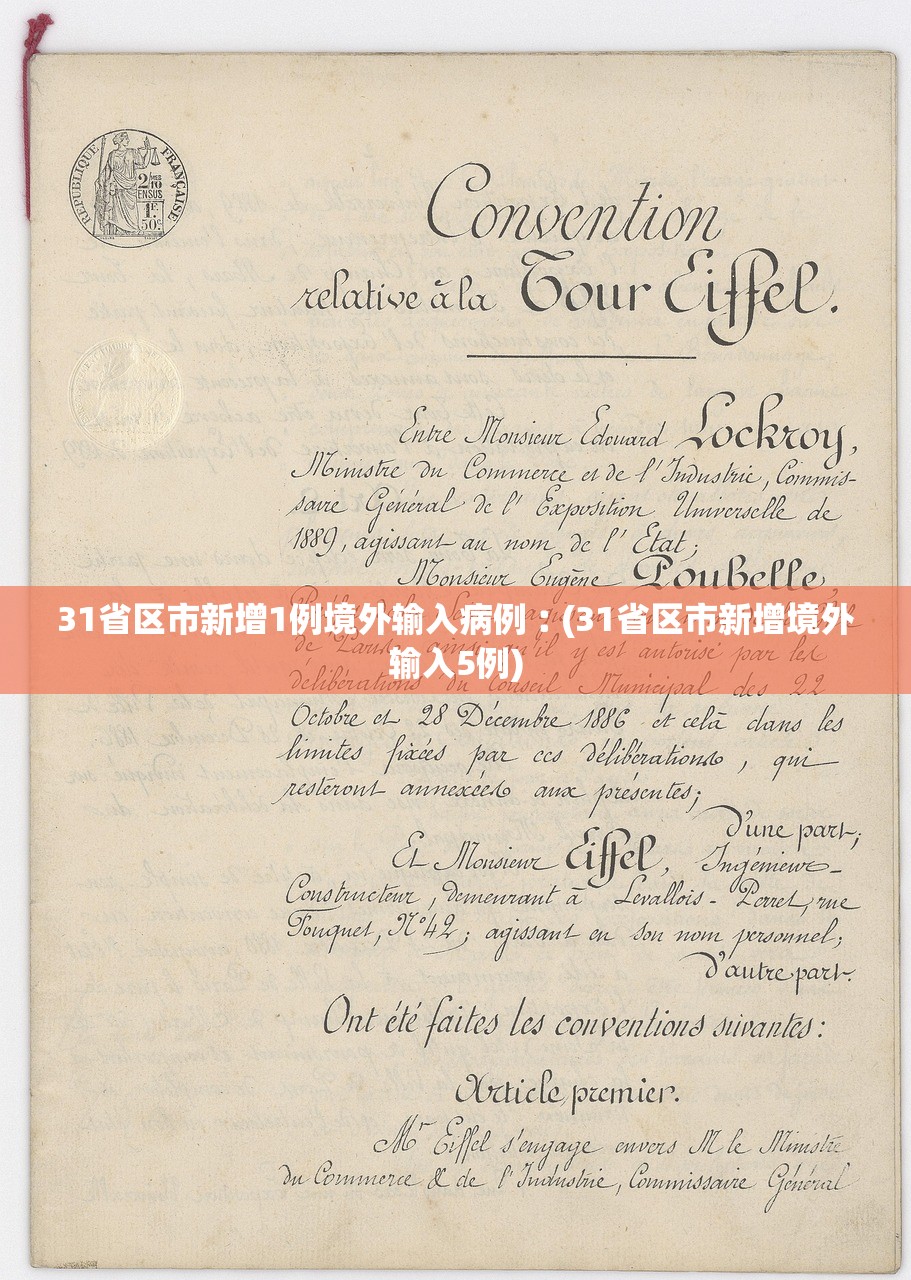 RÉPUBLIQUE FRANÇAISE
2/10
EN SUS
1F.
50c.
Convention
relative à la Tour Eiffel.
Entre Monsieur Edouard Lockroy,
Ministre du Commerce et de l'Industrie, Commis-
saire Général de l'Exposition Universelle de
1889, agissant au nom de l'Etat;
Monsieur Eugène Poubelle,
31省区市新增1例境外输入病例；(31省区市新增境外
输入5例)
de Paris, ainsi qu'il y est autorisé par les
délibérations du Conseil Municipal des 22
Octobre et 28 Décembre 1886 et celà dans les
limites fixées par ces délibérations, qui
resteront annexées aux présentes;
D'une part;
Et Monsieur Eiffel, Ingénieur-
Constructeur, demeurant à Levallois-Perret, rue
Fouquet, N° 42; agissant en son nom personnel;
D'autre part.
Ont été faites les conventions suivantes:
Article premier.
Mr Eiffel s'engage envers M le Ministre
du Commerce & de l'Industrie, Commissaire Général